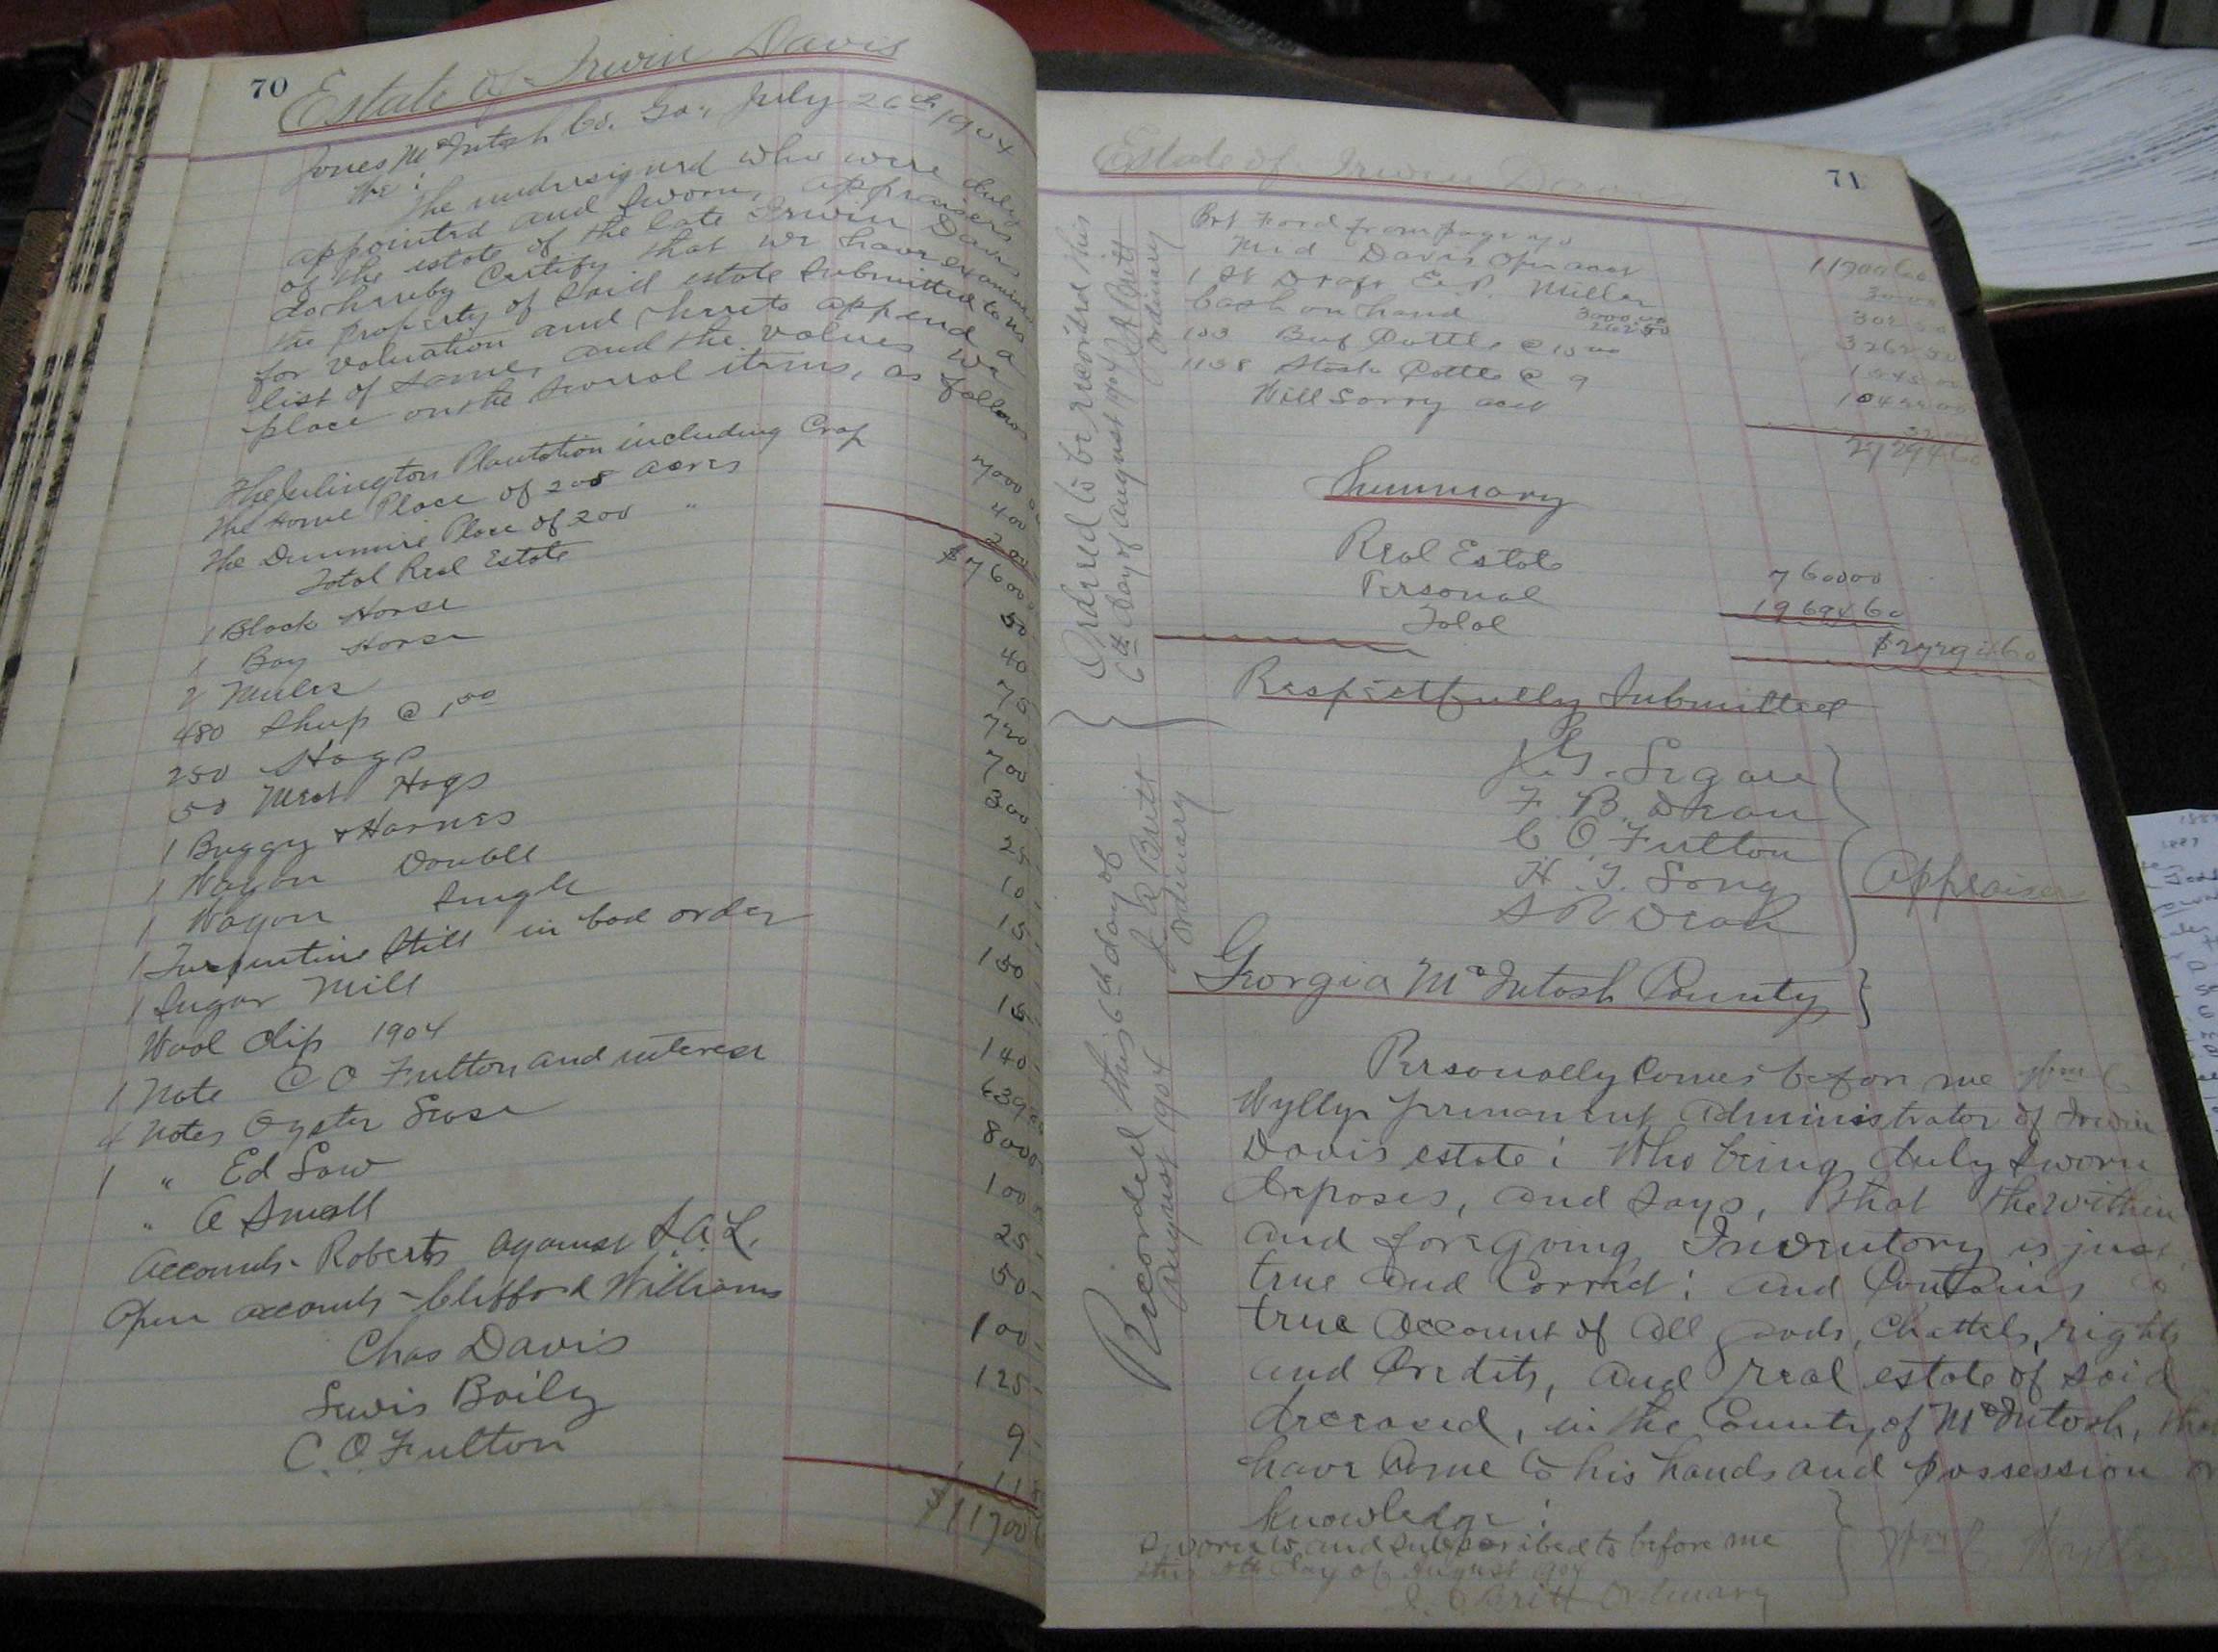 70 Estate of Irwin Davis
Jones McIntosh Co. Ga., July 26th 1904
We:
The undersigned who were duly
appointed and sworn, appraisers
of the estate of the late Irwin Davis
do hereby Certify that we have examined
the property of said estate submitted to us
for valuation and hereto append a
list of same, and the values we
place on the several items, as follows
Plantation including Crop 7000
The Home Place of 208 acres 400
The Place of 200 " 200
Total Real Estate $7600
1 Black Horse 50
1 Bay Horse 40
2 Mules 75
480 Sheep @ 720
250 Hogs 700
50 Meat Hogs 300
1 Buggy & Harness 25
1 Wagon Double 10
1 Wagon Single 15
1 Turpentine Still in bad order 150
1 Sugar Mill 15
Wool Clip 1904 140
1 Note C O Fulton and interest 639
4 Notes Oyster Lease 800
1 " Ed Law 100
" A Small 25
Accounts - Roberts against S.A.L. 50
Open accounts - Clifford Williams 100
Chas Davis 125
Lewis Baily 9
C. O. Fulton
$11700
Estate of Irwin Davis 71
Brt Ford from page 70 11700 60
Davis Open acct 30 00
1 St Draft E. P. Miller 302 50
Cash on hand 3000.00 262.50 3262 50
103 Beef Cattle @ 15 00 1545 00
1158 Stock Cattle @ 9
Will acct
27294 60
Summary
Real Estate 7600 00
Personal 19694 60
Total $27294 60
Respectfully Submitted
F. B. Dean
C O Fulton
Appraisers
Georgia McIntosh County }
Personally Comes before me Wm C
Wylly permanent administrator of Irwin
Davis estate; Who being duly sworn
deposes, and says, that the within
and foregoing Inventory is just
true and Correct; and Contains a
true account of all goods, Chattels, rights
and Credits, and real estate of said
deceased, in the County of McIntosh, that
have Come to his hands and possession or
knowledge;
Sworn to and subscribed to before me
this day of August 904
Britt Ordinary
Ordered to be recorded this
6th day of August 1904 Britt
Ordinary
Recorded this 6th day of
August 1904 Britt
Ordinary